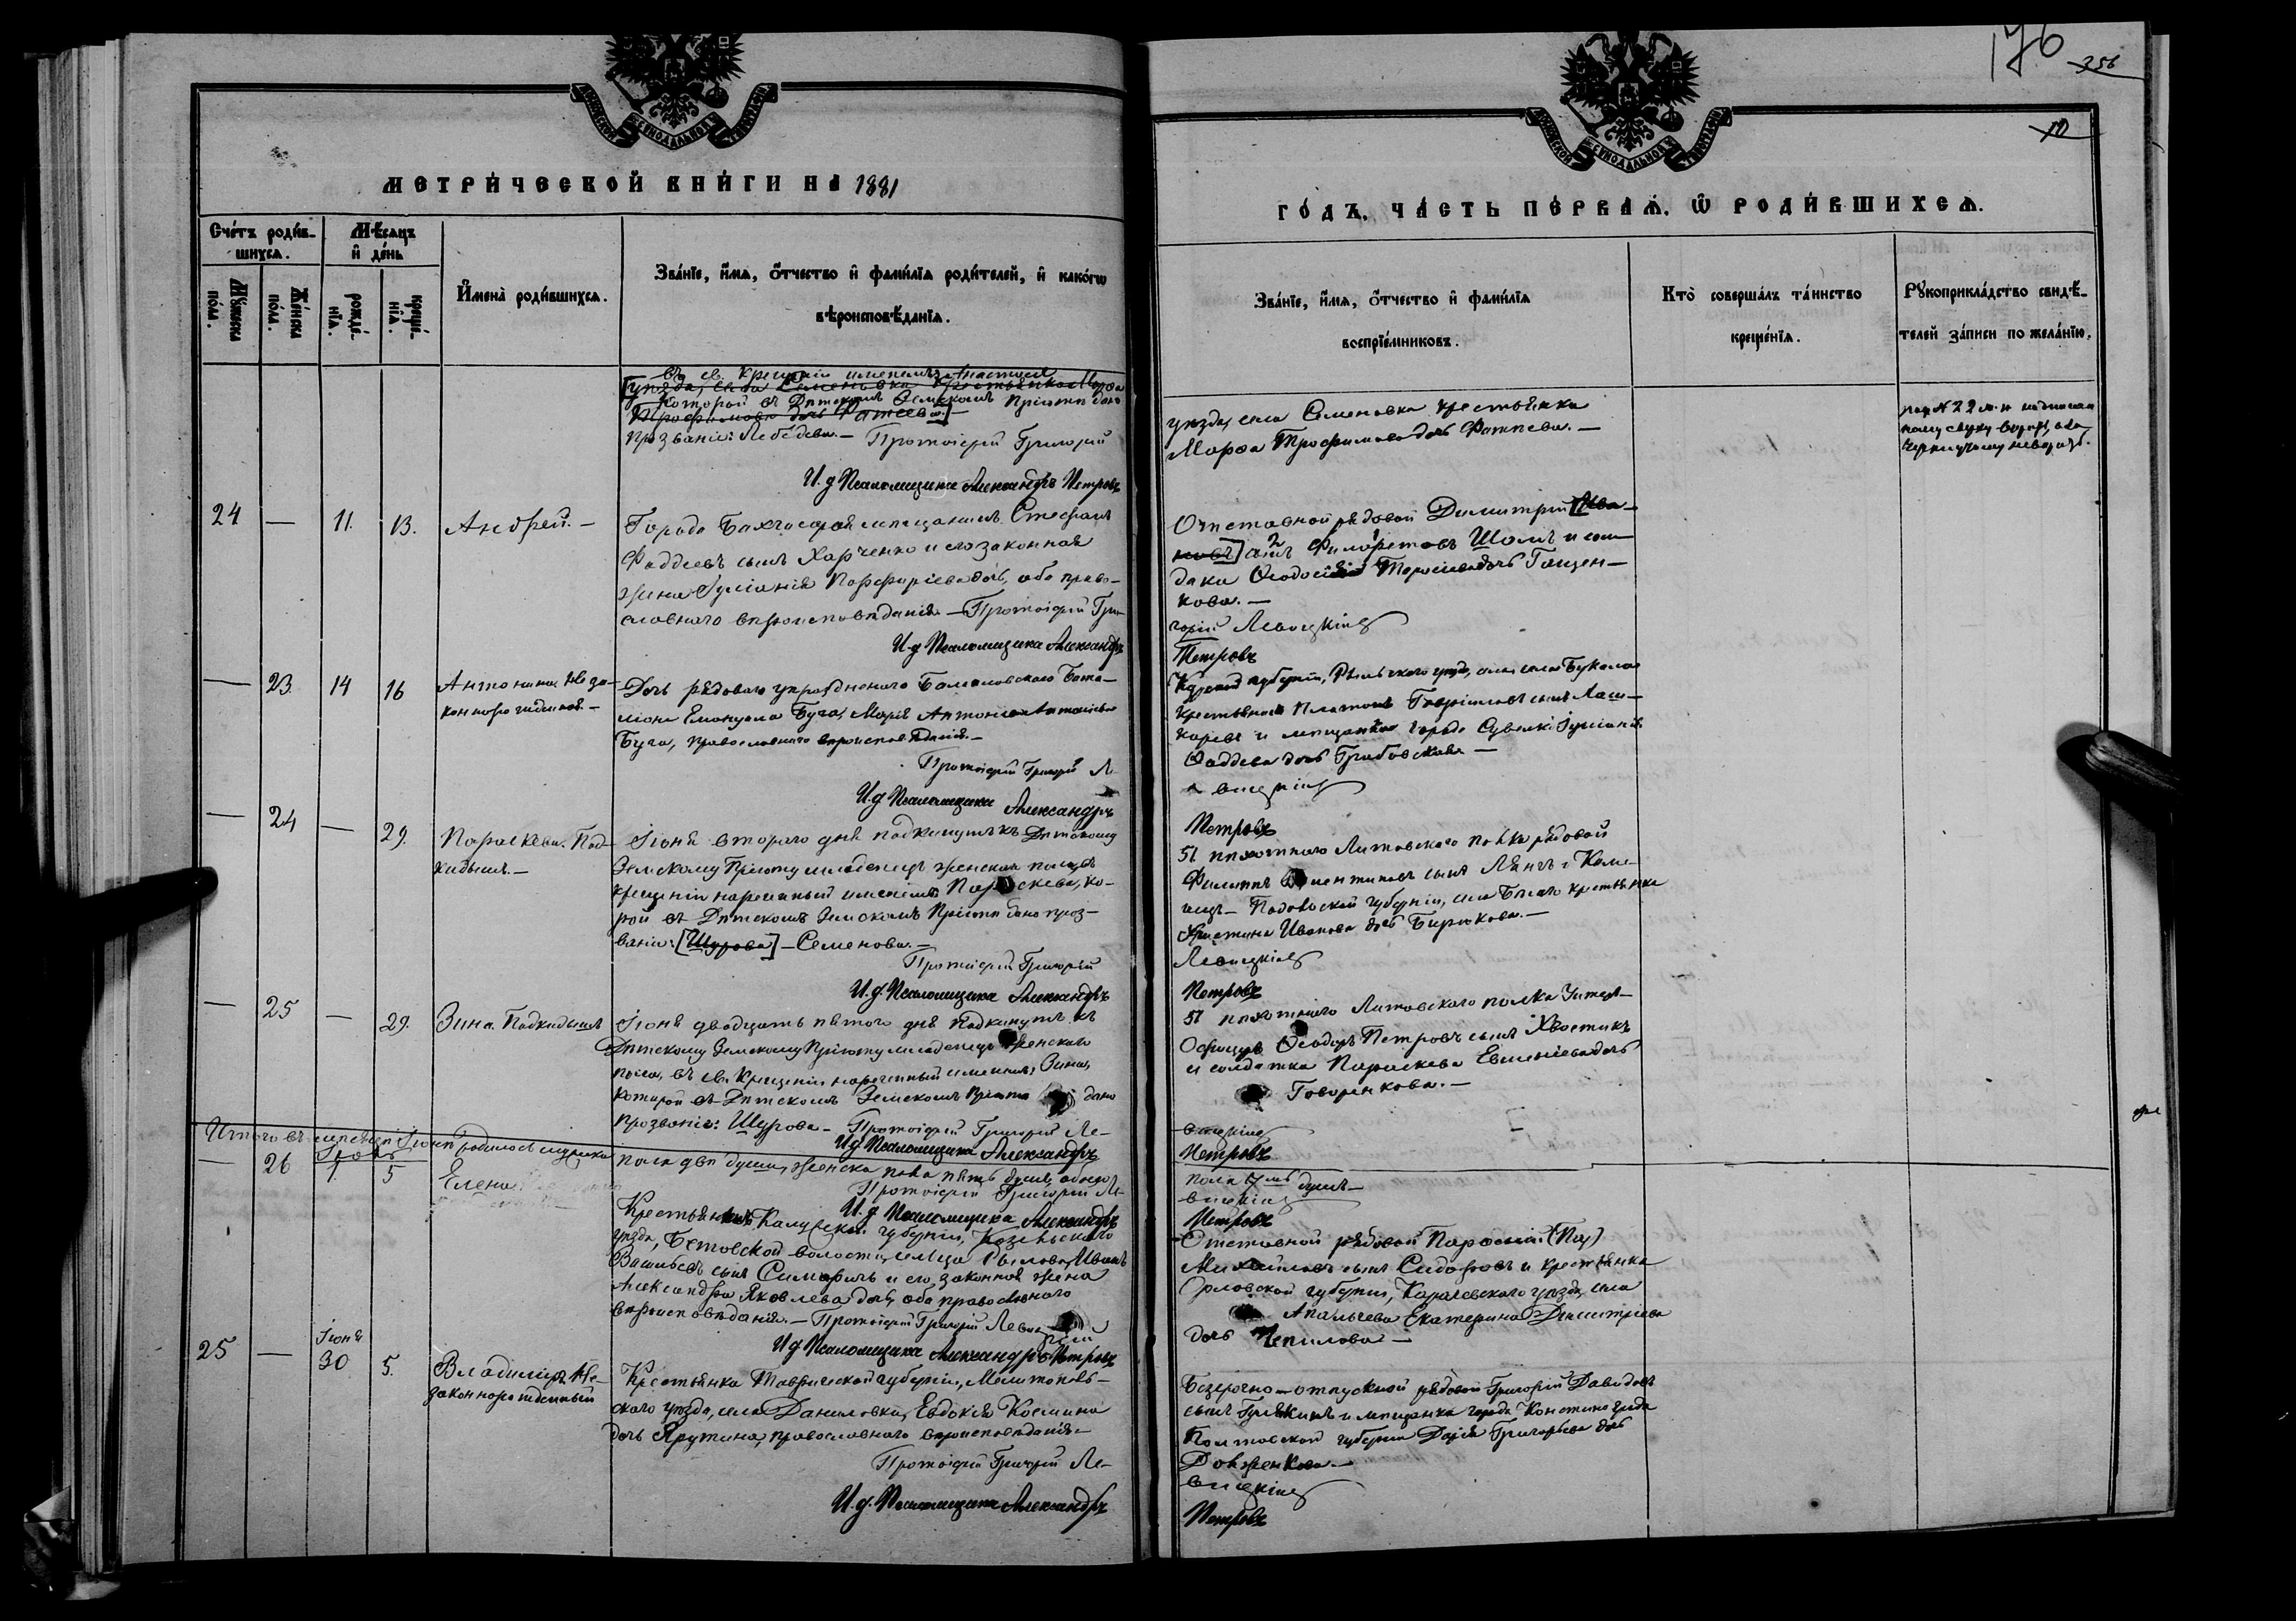 176
356
10
МЕТРИЧЕСКОЙ КНИГИ НА 1881
ГОДЪ, ЧАСТЬ ПЕРВАЯ, Ѿ РОДИВШИХСЯ.
Счетъ родив-
шихся.
Мѣсяцъ
и день
Имена родившихся.
Званіе, имя, отчество и фамилія родителей, и какогѡ
вѣроисповѣданія.
Званіе, имя, отчество и фамилія
воспріемниковъ.
Кто совершалъ таинство
крещенія.
Рукоприкладство свидѣ-
телей записи по желанію.
Мужеска
пола.
Женска
пола.
рожде-
нія.
креще-
нія.
въ св. крещеніи именемъ Анастасія
уѣзда, села Семеновка крестьянка Марѳа
которой въ Дѣтскомъ Земскомъ Пріютѣ дано
Трофимова дочь Фатѣева
прозваніе: Лебедева. — Протоіерей Григорій
И. д. Псаломщика Александръ Петровъ
уѣзда, села Семеновка крестьянка
Марѳа Трофимова дочь Фатѣева. —
24 — 11. 13. Андрей. —
Города Бахчисарая мѣщанинъ Стефанъ
Фаддеевъ сынъ Харченко и его законная
жена Іуліанія Порфиріева дочь, оба право-
славнаго вѣроисповѣданія. — Протоіерей Гри-
И. д. Псаломщика Александръ
Отставной рядовой Димитрій
сынъ Филаретовъ Шоль и сол-
датка Ѳеодосія дочь
кова. —
горій Левицкій
Петровъ
— 23. 14 16 Антонина Неза-
коннорожденная. —
Дочь рядового упраздненаго Бата-
ліона Емануила Буга, Марія Антонія
Буга, православнаго вѣроисповѣданія. —
Протоіерей Григорій Ле-
И. д. Псаломщика Александръ
Курской губерніи, Рыльскаго уѣзда, села
Крестьянинъ Платонъ Гавріиловъ сынъ Лаш-
каревъ и мѣщанка города Іуліанія
Ѳаддеева дочь Грабовскова —
вицкій
Петровъ
— 24 — 29. Параскева. Под-
кидышъ. —
Іюня второго дня подкинутъ къ Дѣтскому
Земскому Пріюту младенецъ женскаго пола, въ
крещеніи нареченный именемъ Параскева, ко-
рой въ Дѣтскомъ Земскомъ Пріютѣ дано проз-
ваніе: [Щурова] — Семенова. —
Протоіерей Григорій
И. д. Псаломщика Александръ
51 пѣхотнаго Литовскаго полка рядовой
Филиппъ сынъ
Подольской губерніи, села крестьянка
Христина Иванова дочь Бирюкова. —
Левицкій
Петровъ
— 25 — 29. Зина. Подкидышъ
Іюня двадцать пятого дня подкинутъ къ
Дѣтскому Земскому Пріюту младенецъ женскаго
пола, въ св. крещеніи нареченный именемъ: Зина,
которой въ Дѣтскомъ Земскомъ Пріютѣ дано
прозваніе: Щурова — Протоіерей Григорій Ле-
И. д. Псаломщика Александръ
51 пѣхотнаго Литовскаго полка Унтеръ-
Офицеръ Ѳеодоръ Петровъ сынъ Хвостикъ
и солдатка Параскева Евменіева дочь
Говоренкова. —
вицкій
Петровъ
Итого въ мѣсяцѣ Іюнѣ родилось мужска
пола двѣ души, женска пола пять душъ, обоего
Протоіерей Григорій Ле-
И. д. Псаломщика Александръ
пола семь душъ —
вицкій
Петровъ
Іюль
— 26 1 5 Елена
Крестьянинъ Калужской губерніи, Козельскаго
уѣзда, Бетовской волости, сельца Иванъ
Васильевъ сынъ и его законная жена
Александра Яковлева дочь, оба православнаго
вѣроисповѣданія. — Протоіерей Григорій Левиц-
кій
И. д. Псаломщика Александръ Петровъ
Отставной рядовой
Михайловъ сынъ Сидоровъ и крестьянка
Орловской губерніи, Карачевскаго уѣзда, села
Апальчева Екатерина Димитріева
дочь Чепилова —
Іюня
25 — 30 5. Владиміръ Не-
законнорожденный
Крестьянка Таврической губерніи, Мелитополь-
скаго уѣзда, села Даниловки, Евдокія Косьмина
дочь Ярутина, православнаго вѣроисповѣданія. —
Протоіерей Григорій Ле-
И. д. Псаломщика Александръ
Безсрочно-отпускной рядовой Григорій Давидовъ
сынъ и мѣщанка города Константинограда
Полтавской губерніи Дарія Григорьева дочь
Довженкова. —
вицкій
Петровъ